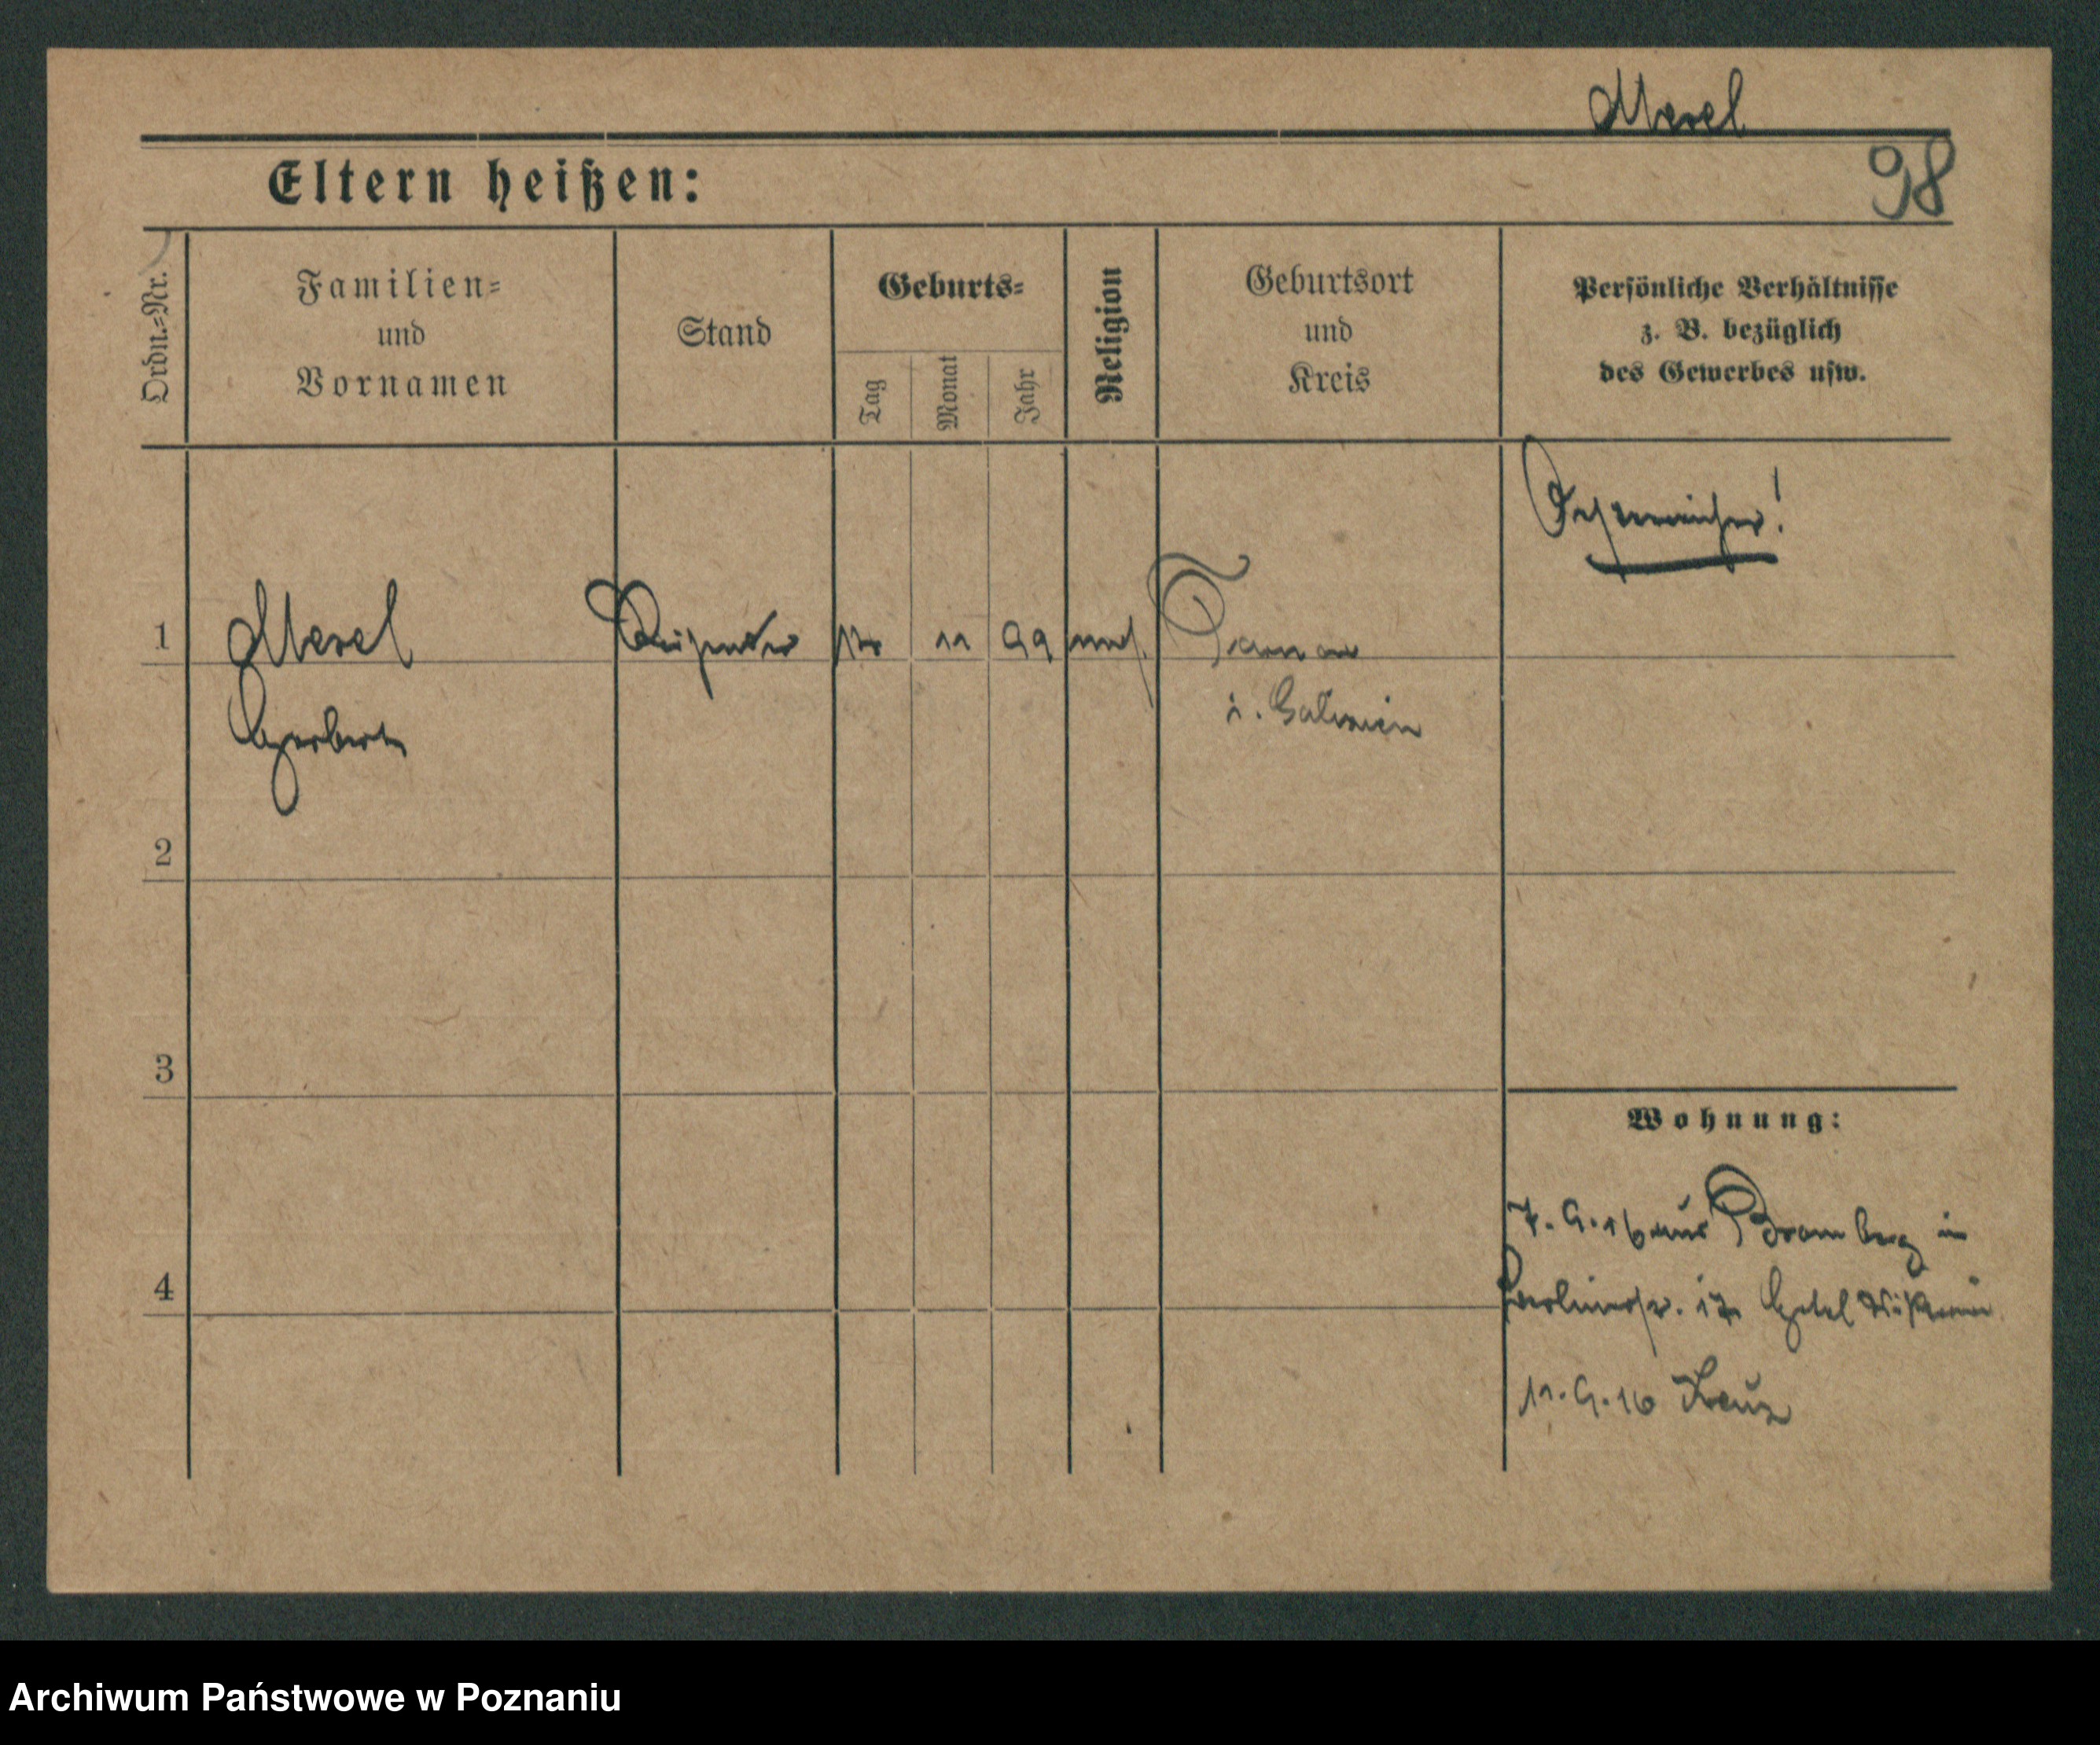 Merel
98
Eltern heißen:
Ordn.-Nr.
Familien-
und
Vornamen
Stand
Geburts-
Tag
Monat
Jahr
Religion
Geburtsort
und
Kreis
Persönliche Verhältnisse
z. B. bezüglich
des Gewerbes usw.
Österreicher!
1
Merel
11
99
Tarnow
Herbert
i. Galizien
2
3
Wohnung:
7.9.16 aus Bromberg in
4
Berlinerstr. 17 Hotel
11.9.16 Kreuz
Archiwum Państwowe w Poznaniu